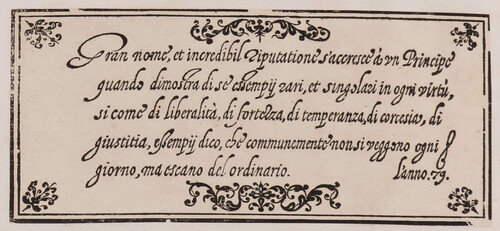 Gran nome, et incredibil riputatione s'accresce à un Principe
quando dimostra di se essempij rari, et singolari in ogni virtù,
si come di liberalità, di fortezza, di temperanza, di cortesia, di
giustitia, essempij dico, che communemente non si veggono ogni
giorno, ma escano del ordinario. L'anno. 79.